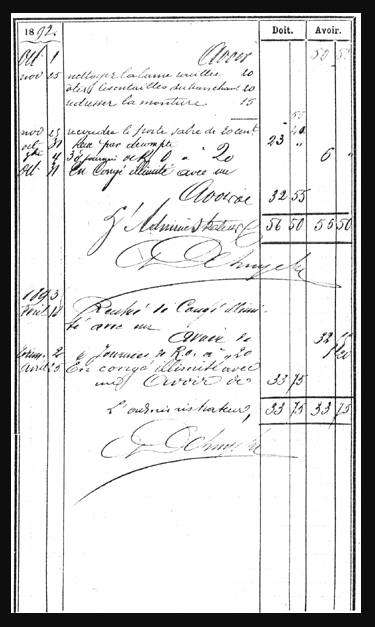 1892. Doit. Avoir.
Oct 1 Avoir 50 5
nov 25 nettoyer la lame rouillée 20
ôter les entailles du tranchant 20
redresser la monture 15
55
nov 25 recoudre le porte sabre de 20 cent
oct 31 Paix par décompte 23 "
4 3 Journées de R. O à 20 6 "
31 En Congé illimité avec un
Avoir de 32 55
L'Administrateur 56 50 55 50
1893
18 Rentré de Congé illimi-
té avec un
Avoir de 32 55
2 6 Journées de R.O. à "20 1 20
Avril 25 En congé illimité avec
un Avoir de 33 75
L'administrateur, 33 75 33 75